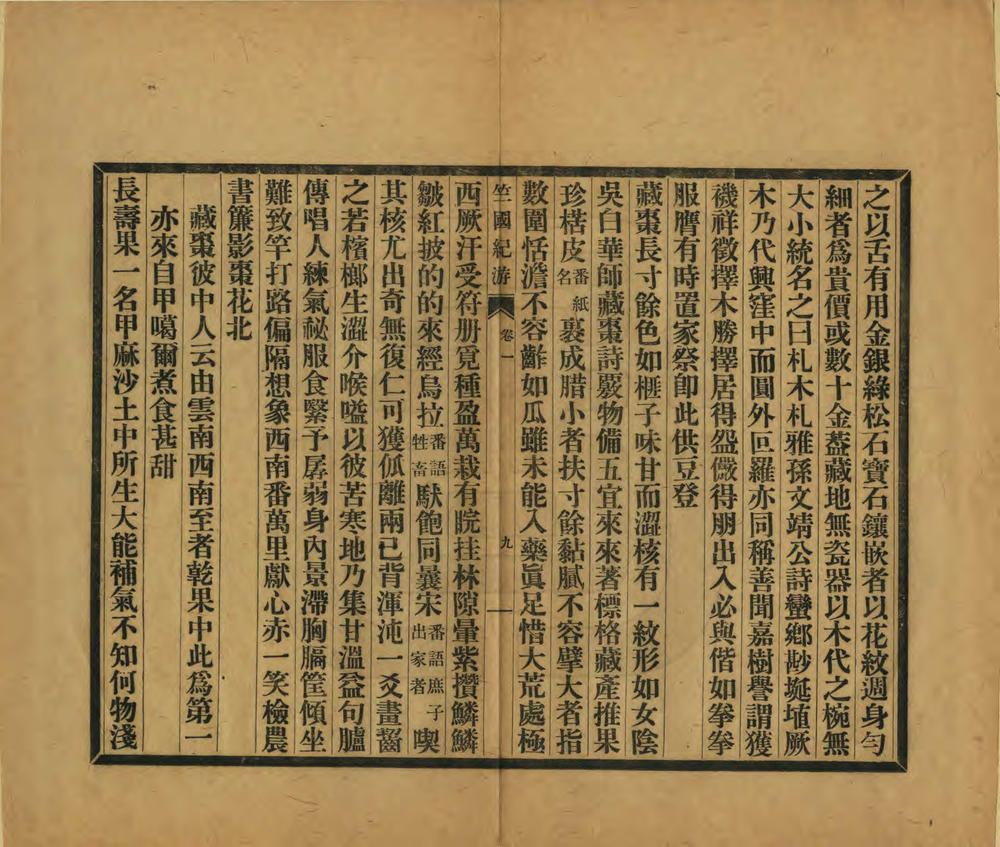 之以舌有用金銀綠松石寶石鑲嵌者以花紋週身勻
細者爲貴價或數十金葢藏地無瓷器以木代之椀無
大小統名之曰札木札雅孫文靖公詩蠻鄉尠埏埴厥
木乃代興窪中而圓外叵羅亦同稱善聞嘉樹譽謂獲
禨祥徵擇木勝擇居得盌儼得朋出入必與偕如拳拳
服膺有時置家祭卽此供豆登
藏棗長寸餘色如榧子味甘而澀核有一紋形如女陰
吳白華師藏棗詩覈物備五宜來來著標格藏產推果
珍楛皮番紙名裹成腊小者扶寸餘黏膩不容擘大者指
數圍恬澹不容齰如瓜雖未能入藥眞足惜大荒處極
竺國紀游 卷一 九
西厥汗受符册寛種盈萬栽有睆挂林隙暈紫攢鱗鱗
皺紅披的的來經烏拉番語牲畜馱飽同曩宋番語庶子出家者喫
其核尤出奇無復仁可獲佤離兩已背渾沌一爻畫齧
之若檳榔生澀介喉嗌以彼苦寒地乃集甘溫益句臚
傳唱人練氣祕服食緊予孱弱身內景滯胸膈筐傾坐
難致竿打路偏隔想象西南番萬里獻心赤一笑檢農
書簾影棗花北
藏棗彼中人云由雲南西南至者乾果中此爲第一
亦來自甲噶爾煮食甚甜
長壽果一名甲麻沙土中所生大能補氣不知何物淺